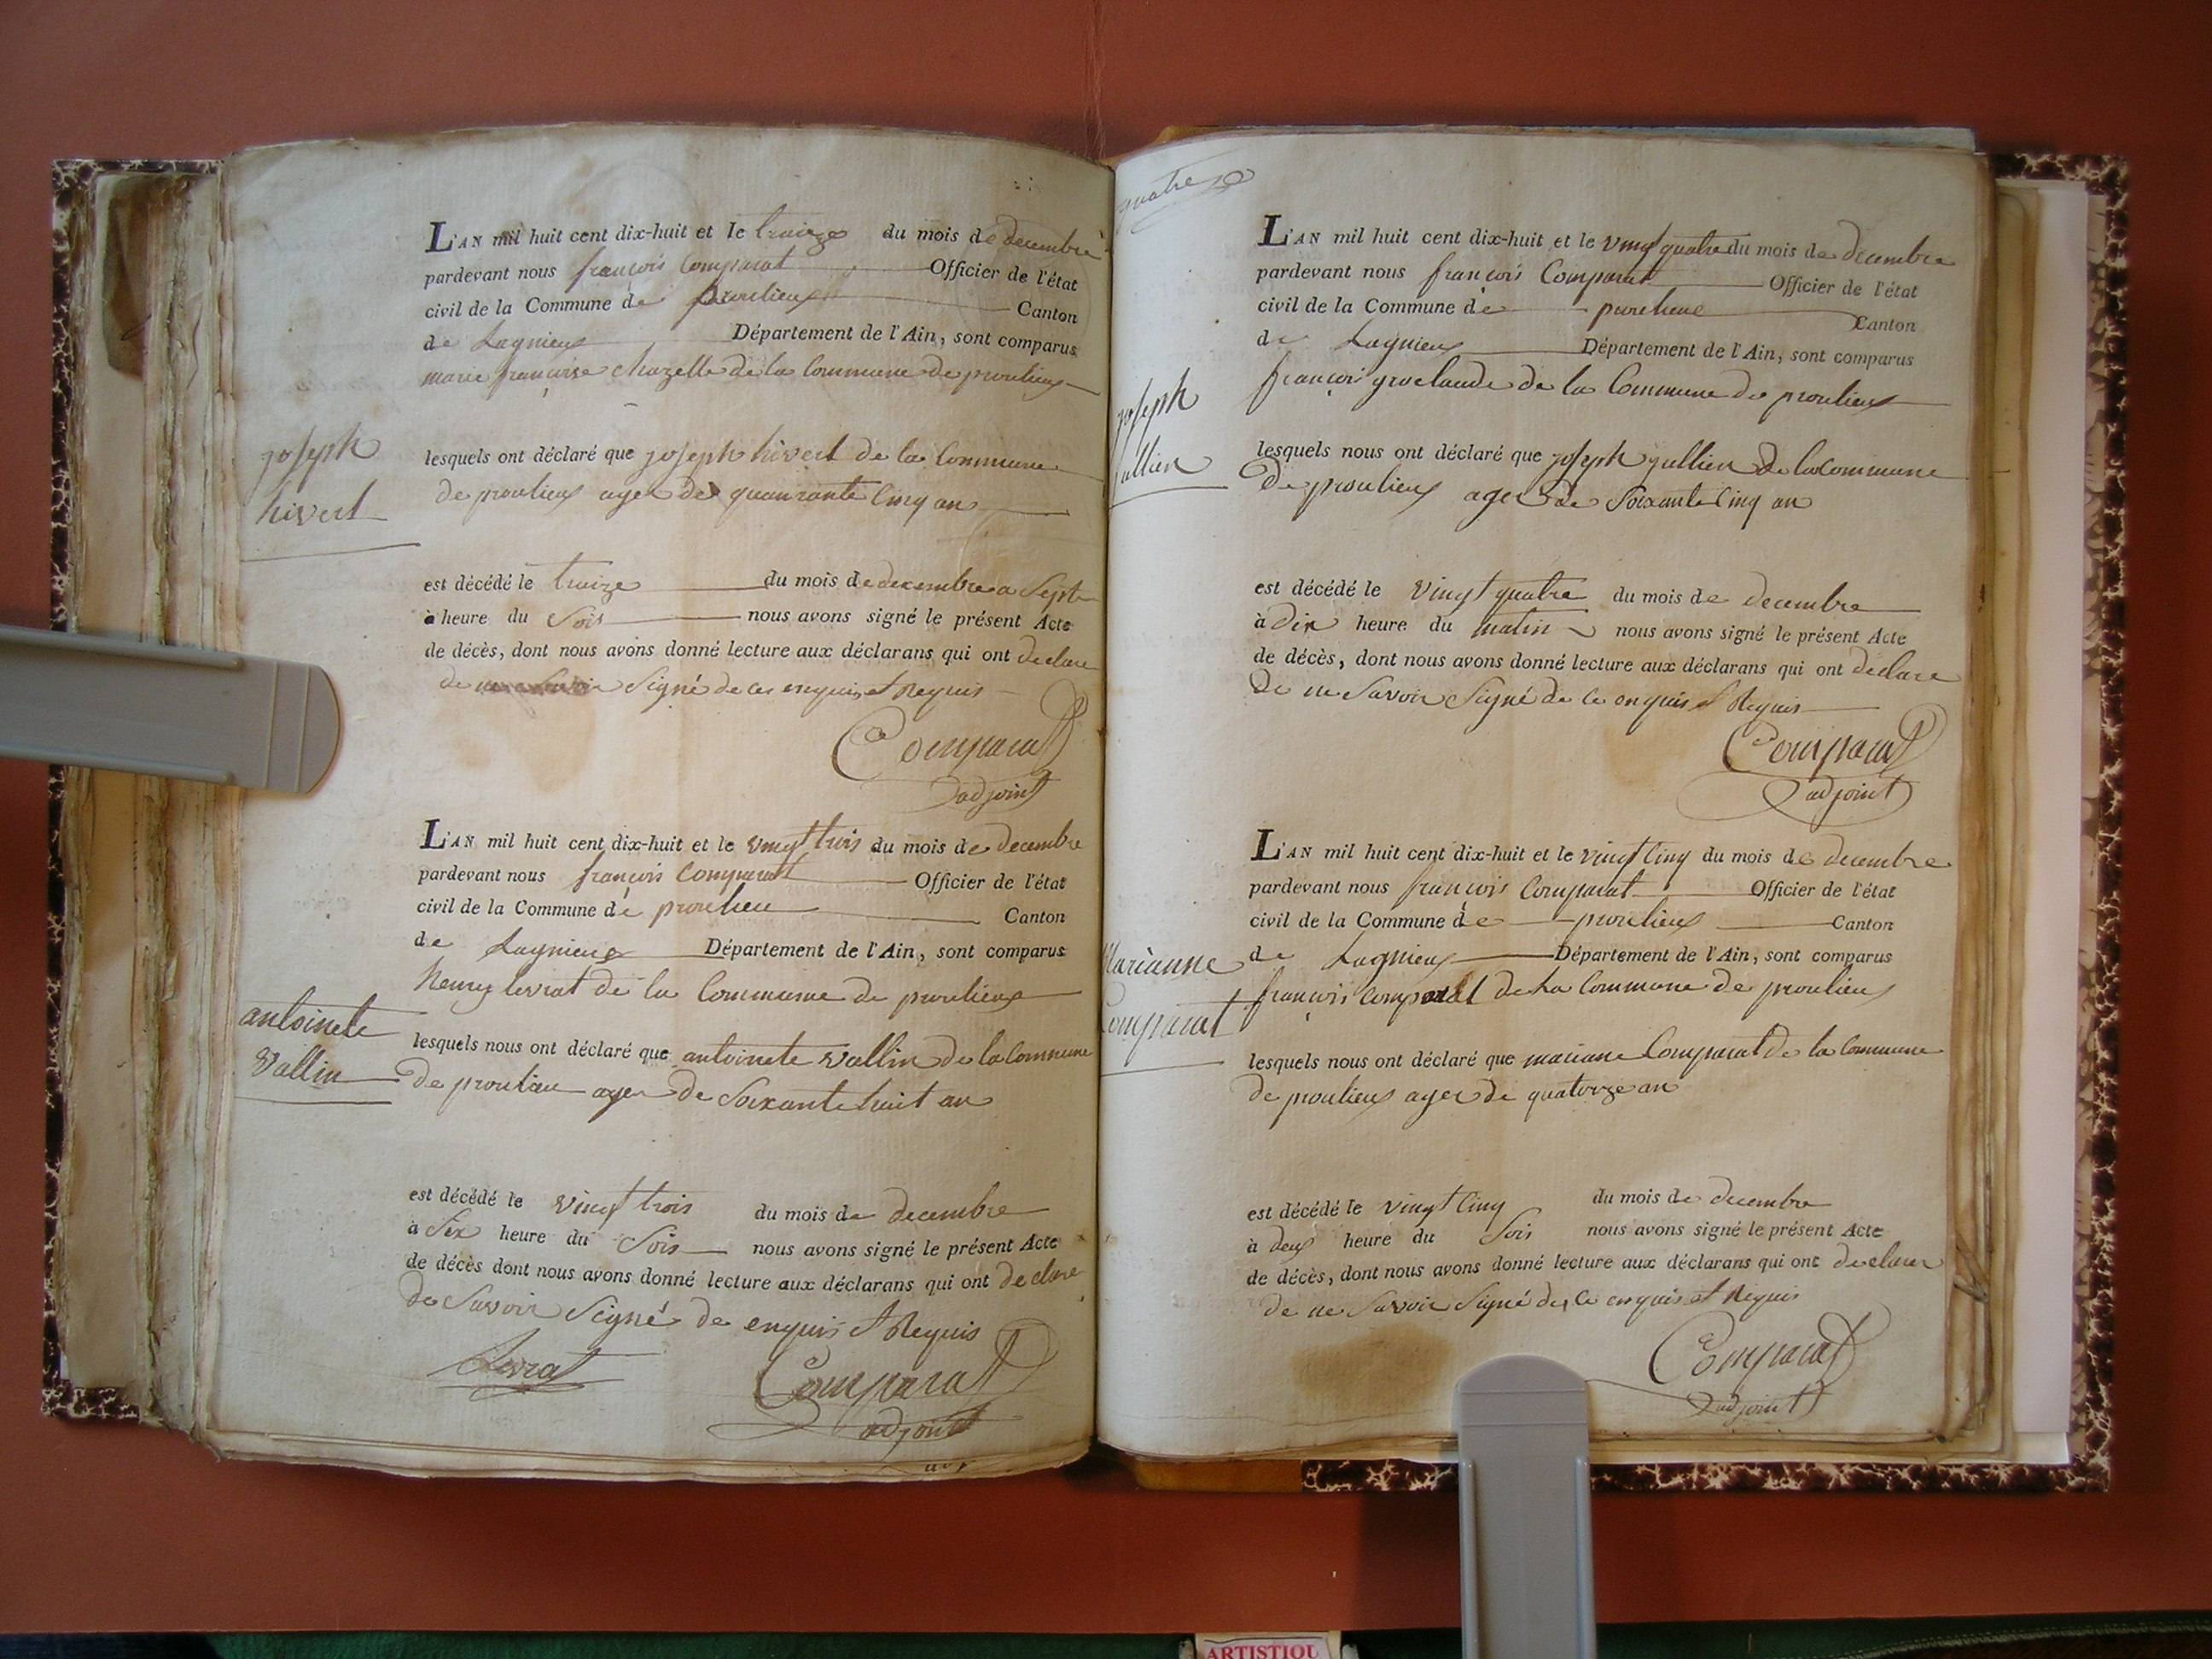 L'AN mil huit cent dix-huit et le traize du mois de decembre
pardevant nous françois Comparat Officier de l'état
civil de la Commune de proulieux Canton
de Lagnieux Département de l'Ain, sont comparus
marie françoise chazelle de la Commune de proulieux
joseph
hivert
lesquels ont déclaré que joseph hivert de la Commune
de proulieux ager de quaurante Cinq an
est décédé le traize du mois de decembre a Sept
à heure du Soir nous avons signé le présent Acte
de décès, dont nous avons donné lecture aux déclarans qui ont declare
de ne Savoir Signé de ce enquis et Requis
Comparat
adjoint
L'AN mil huit cent dix-huit et le vingt trois du mois de decembre
pardevant nous françois Comparat Officier de l'état
civil de la Commune de proulieu Canton
de Lagnieux Département de l'Ain, sont comparus
henry levrat de la Commune de proulieux
antoinete
Vallin
lesquels nous ont déclaré que antoinete Vallin de la Commune
de proulieu ager de Soixante huit an
est décédé le vingt trois du mois de decembre
à Six heure du Soir nous avons signé le présent Acte
de décès dont nous avons donné lecture aux déclarans qui ont declare
de Savoir Signé de enquis et Requis
Levrat
Comparat
adjoint
quatre
L'AN mil huit cent dix-huit et le vingt quatre du mois de decembre
pardevant nous françois Comparat Officier de l'état
civil de la Commune de proulieux Canton
de Lagnieux Département de l'Ain, sont comparus
françois groclaude de la Commune de proulieux
joseph
jullien
lesquels nous ont déclaré que joseph jullien de la Commune
de proulieux ager de Soixante Cinq an
est décédé le vingt quatre du mois de decembre
à dix heure du matin nous avons signé le présent Acte
de décès, dont nous avons donné lecture aux déclarans qui ont declare
de ne Savoir Signé de ce enquis et Requis
Comparat
adjoint
L'AN mil huit cent dix-huit et le vingt Cinq du mois de decembre
pardevant nous françois Comparat Officier de l'état
civil de la Commune de proulieux Canton
de Lagnieux Département de l'Ain, sont comparus
françois Comparat de La Commune de proulieux
Marianne
Comparat
lesquels nous ont déclaré que mariane Comparat de la Commune
de proulieux ager de quatorze an
est décédé le vingt Cinq du mois de decembre
à deux heure du Soir nous avons signé le présent Acte
de décès, dont nous avons donné lecture aux déclarans qui ont declarer
de ne Savoir Signé de ce enquis et Requis
Comparat
adjoint
ARTISTIQU